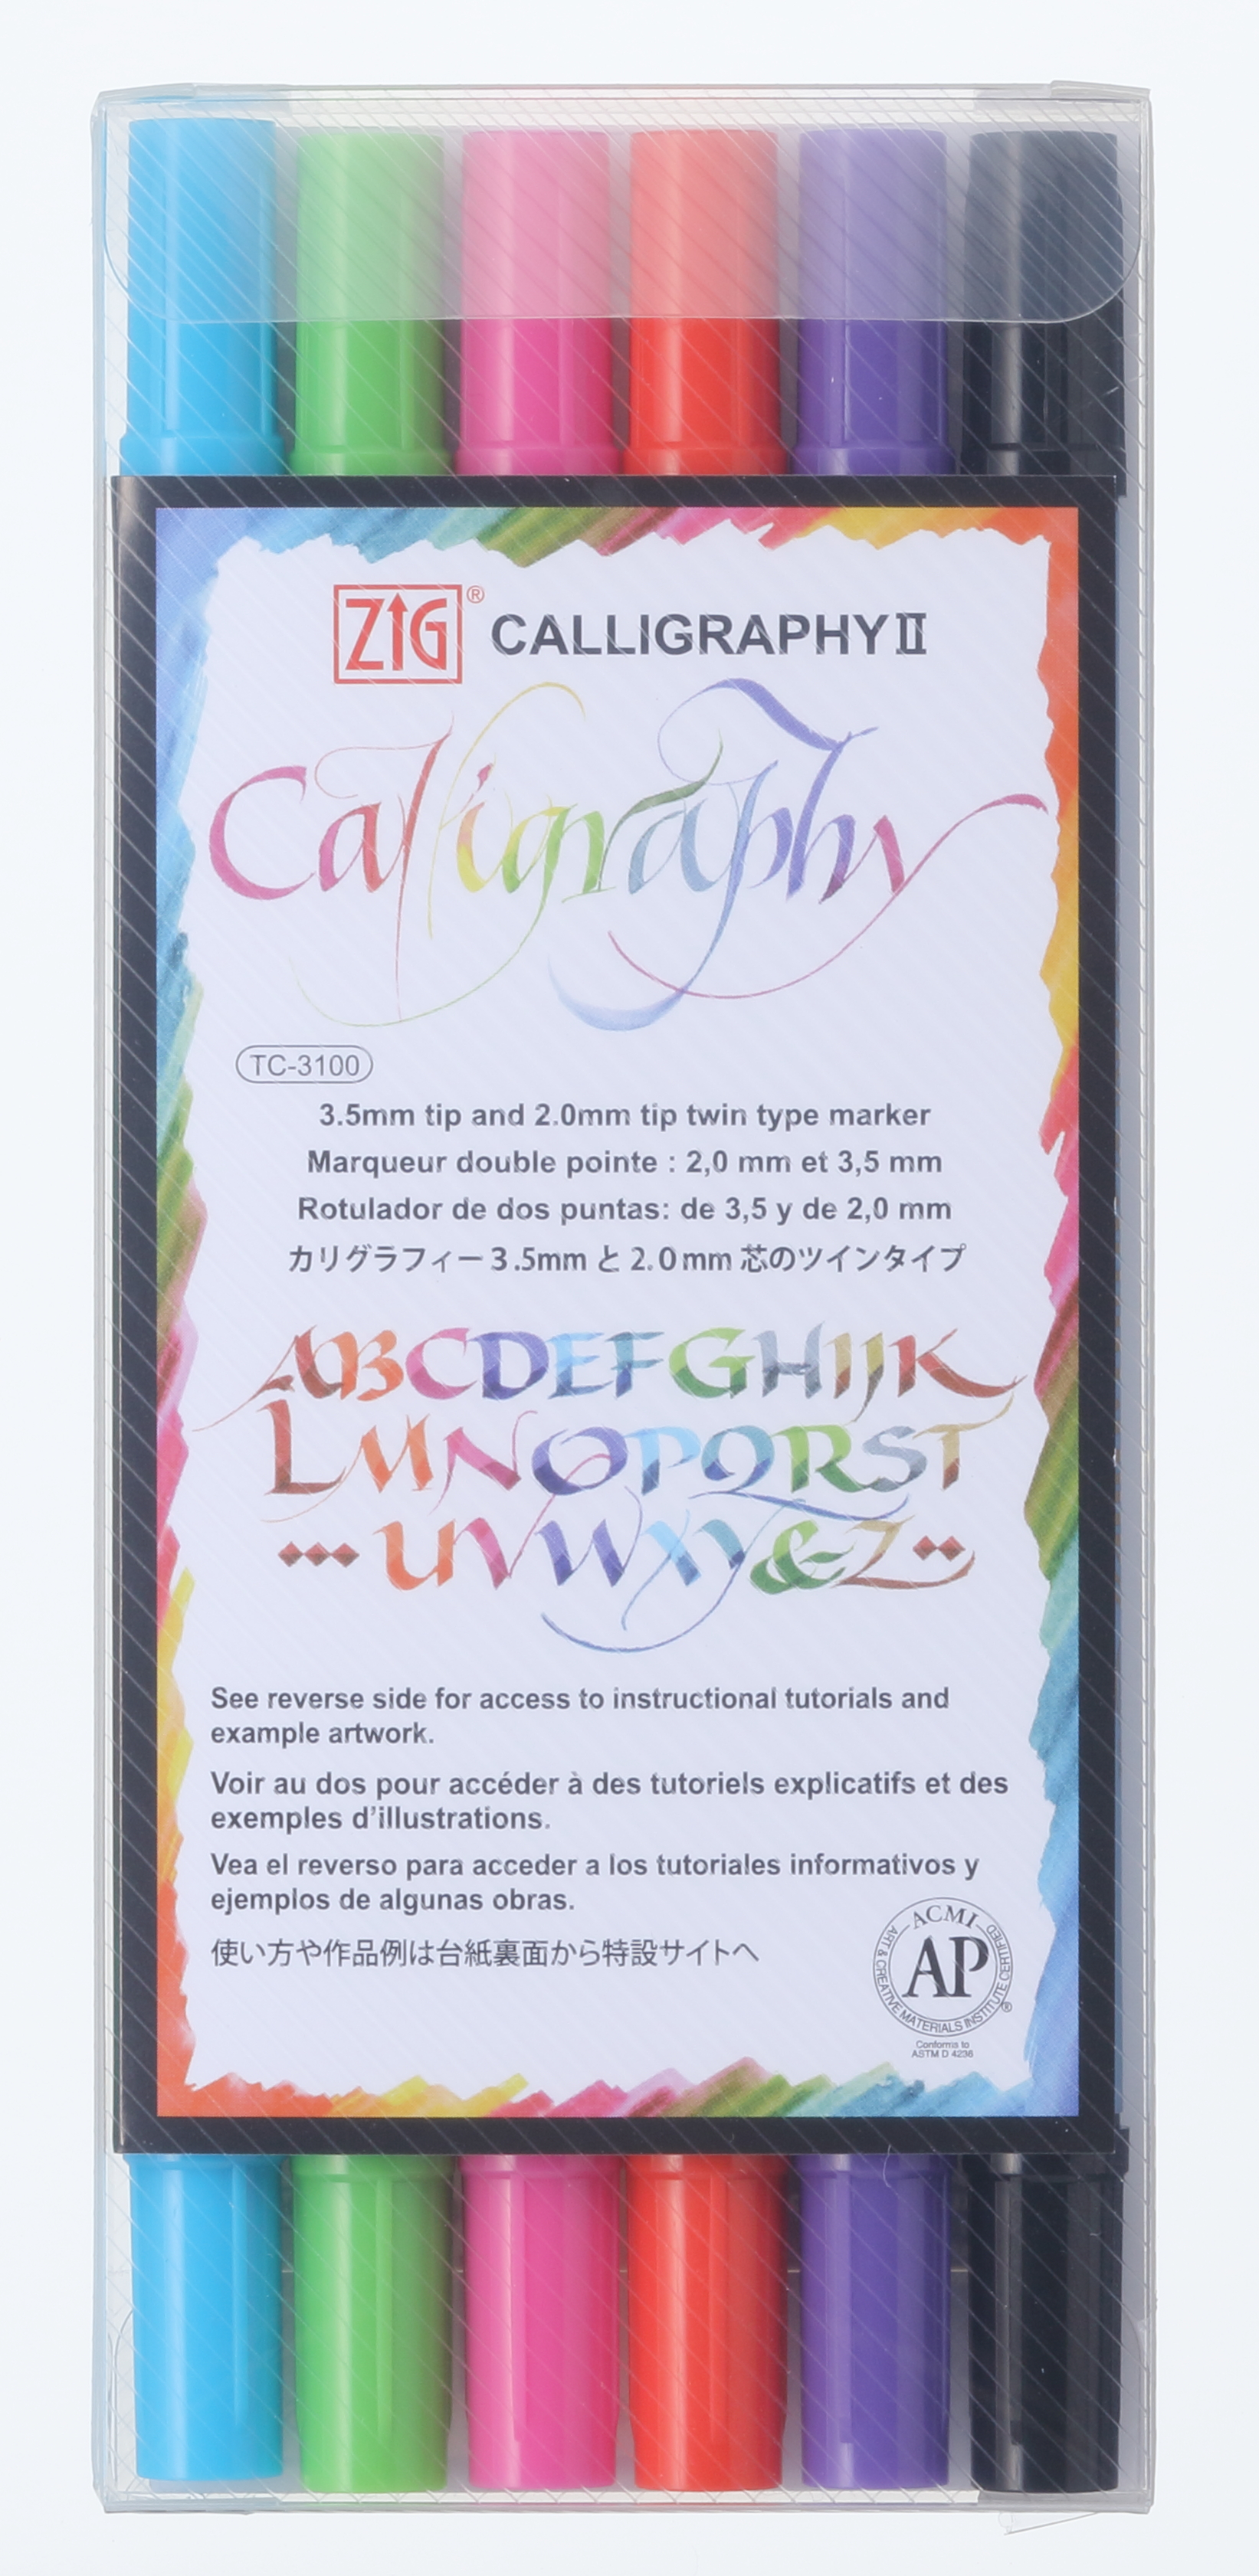 ZIG® CALLIGRAPHY II
Calligraphy
TC-3100
3.5mm tip and 2.0mm tip twin type marker
Marqueur double pointe : 2,0 mm et 3,5 mm
Rotulador de dos puntas: de 3,5 y de 2,0 mm
カリグラフィー 3.5mm と 2.0mm 芯のツインタイプ
ABCDEFGHIJK
LMNOPQRST
UVWXY&Z
See reverse side for access to instructional tutorials and
example artwork.
Voir au dos pour accéder à des tutoriels explicatifs et des
exemples d’illustrations.
Vea el reverso para acceder a los tutoriales informativos y
ejemplos de algunas obras.
使い方や作品例は台紙裏面から特設サイトへ
ACMI
AP
ART & CREATIVE MATERIALS INSTITUTE CERTIFIED
®
Conforms to
ASTM D 4236